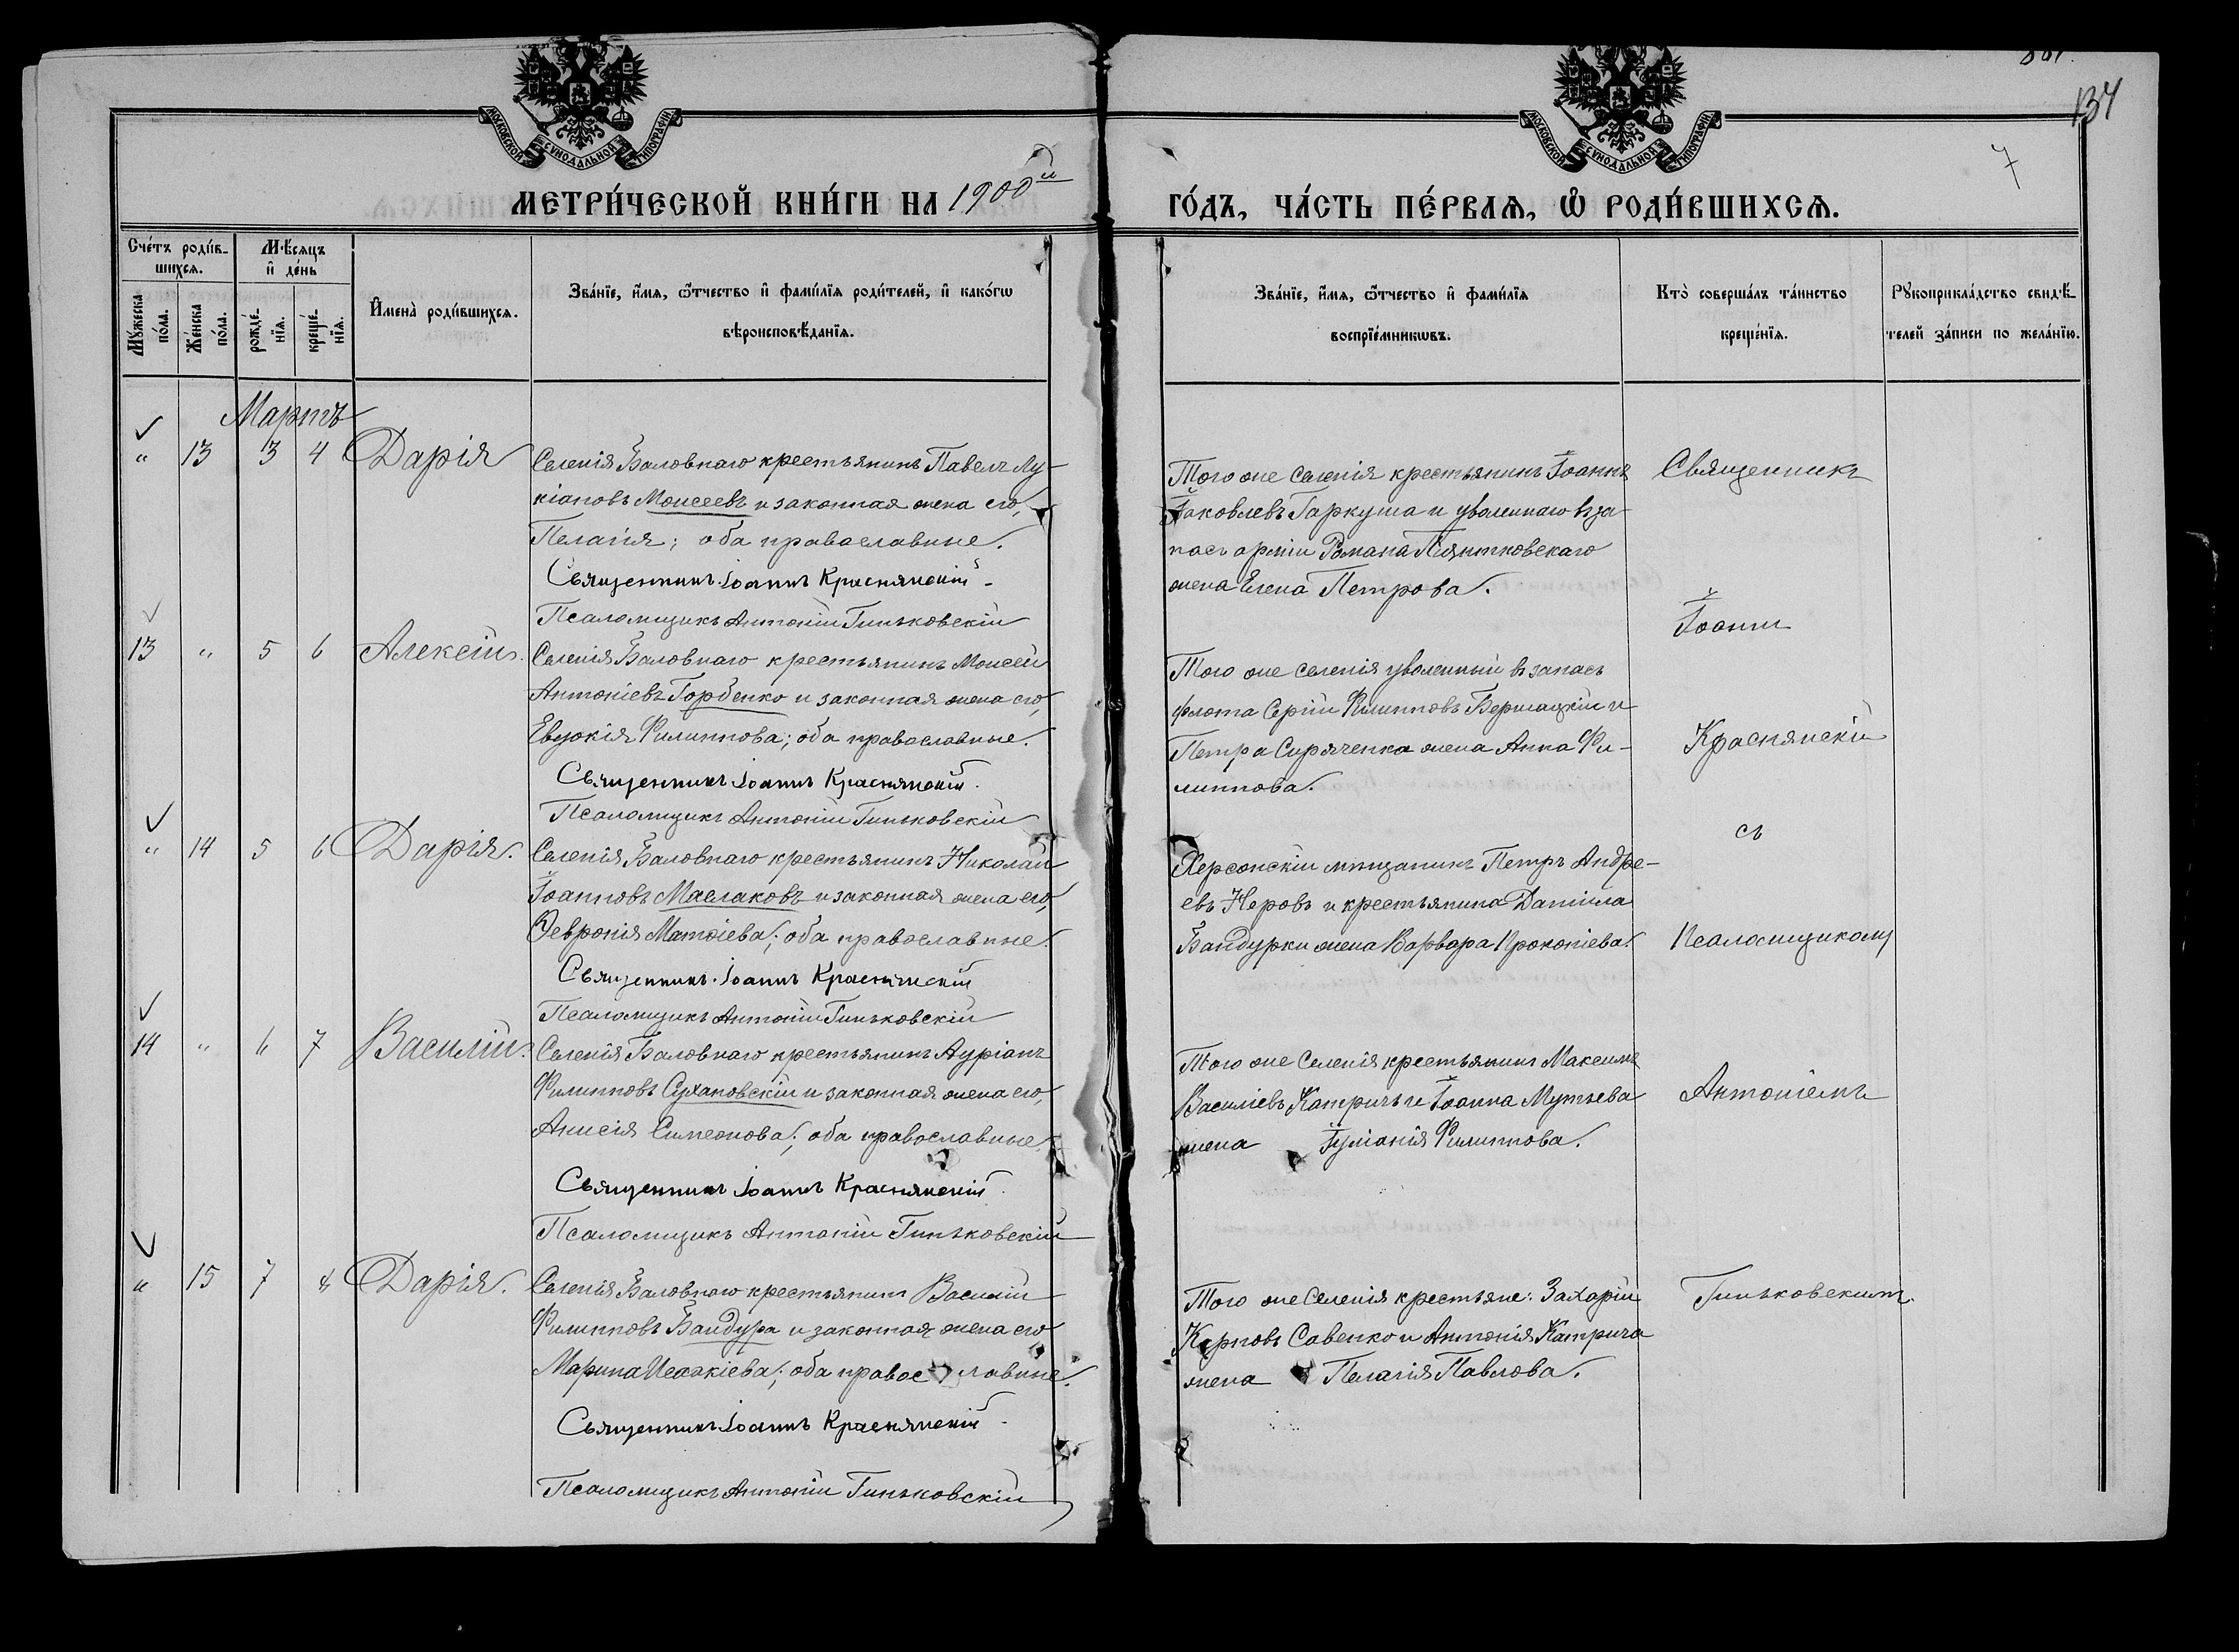 134
7
МОСКОВСКОЙ СѴНОДАЛЬНОЙ ТИПОГРАФІИ
МОСКОВСКОЙ СѴНОДАЛЬНОЙ ТИПОГРАФІИ
МЕТРИ́ЧЕСКОЙ КНИ́ГИ НА 1900й
ГО́ДЪ, ЧА́СТЬ ПЕ́РВАѦ, Ѡ҆ РОДИ́ВШИХСѦ.
Сче́тъ роди́в-
шихсѧ.
Мꙋ́жеска по́ла.
Же́нска по́ла.
Мѣ́сѧцъ
и҆ де́нь
рожде́-
нїѧ.
креще́-
нїѧ.
И҆мена̀ роди́вшихсѧ.
Зва́нїе, и҆́мѧ, ѻ҆́тчество и҆ фамѝлїѧ роди́телей, и҆ како́гѡ
вѣроисповѣ́данїѧ.
Зва́нїе, и҆́мѧ, ѻ҆́тчество и҆ фамѝлїѧ
воспрїе́мникѡвъ.
Кто̀ соверша́лъ та́инство
креще́нїѧ.
Рꙋкоприкла́дство свидѣ́-
телей за́писи по жела́нїю.
Мартъ
" 13 3 4 Дарія
Селенія Баловнаго крестьянинъ Павелъ Лу-
кіановъ Моисеевъ и законная жена его,
Пелагія; оба православные.
Священникъ Іоаннъ Краснянскій
Псаломщикъ Антоній Гиньковскій
Того же селенія крестьянинъ Іоаннъ
Іаковлевъ Гаркуша и уволеннаго въ за-
пасъ арміи Романа Піянтковскаго
жена Елена Петрова.
13 " 5 6 Алексій.
Селенія Баловнаго крестьянинъ Моисей
Антоніевъ Горбенко и законная жена его,
Евдокія Филиппова; оба православные.
Священникъ Іоаннъ Краснянскій.
Псаломщикъ Антоній Гиньковскій
Того же селенія уволенный въ запасъ
флота Сергій Филипповъ Бершацкій и
Петра Сиряченка жена Анна Фи-
липпова.
" 14 5 6 Дарія.
Селенія Баловнаго крестьянинъ Николай
Іоанновъ Маслаковъ и законная жена его,
Февронія Матѳіева; оба православные.
Священникъ Іоаннъ Краснянскій
Псаломщикъ Антоній Гиньковскій
Херсонскій мѣщанинъ Петръ Андре-
евъ Неровъ и крестьянина Даніила
Бандурки жена Варвара Прокопіева.
14 " 6 7 Василій.
Селенія Баловнаго крестьянинъ Адріанъ
Филипповъ Сухановскій и законная жена его,
Анисія Симеонова; оба православные
Священникъ Іоаннъ Краснянскій.
Псаломщикъ Антоній Гиньковскій
Того же Селенія крестьянинъ Максимъ
Василіевъ Катричъ и Іоанна Мутьева
жена Іуліанія Филиппова.
" 15 7 8 Дарія.
Селенія Баловнаго крестьянинъ Василій
Филипповъ Бандура и законная жена его
Марина Исаакіева; оба православные.
Священникъ Іоаннъ Краснянскій
Псаломщикъ Антоній Гиньковскій
Того же Селенія крестьяне: Захарій
Карповъ Савенко и Антонія Катрича
жена Пелагія Павлова.
Священникъ
Іоаннъ
Краснянскій
съ
Псаломщикомъ
Антоніемъ
Гиньковскимъ.